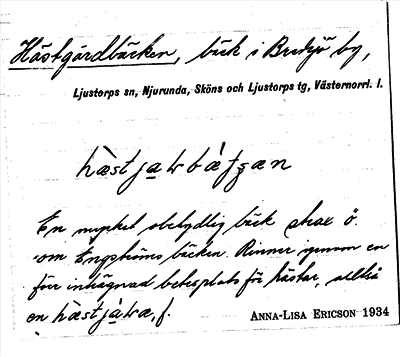 Hästgårdbäcken, bäck i Bredsjö by,
Ljustorps sn, Njurunda, Sköns och Ljustorps tg, Västernorrl. l.
En mycket obetydlig bäck strax ö.
om Engströms bäcken. Rinner genom en
för inhägnad betesplats för hästar, alltså
en
ANNA-LISA ERICSON 1934